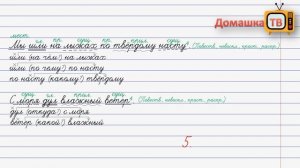 Домашка
ТВ
мест. гл. пр. сущ. пр. прил. сущ.
Мы шли на лыжах по твёрдому насту. (Повеств., невоскл., прост., распр.)
шли (на чём?) на лыжах
шли (по чему?) по насту
по насту (какому?) твёрдому
пр. сущ. гл. прил. сущ.
С моря дул влажный ветер. (Повеств., невоскл., прост., распр.)
дул (откуда?) с моря
ветер (какой?) влажный
5